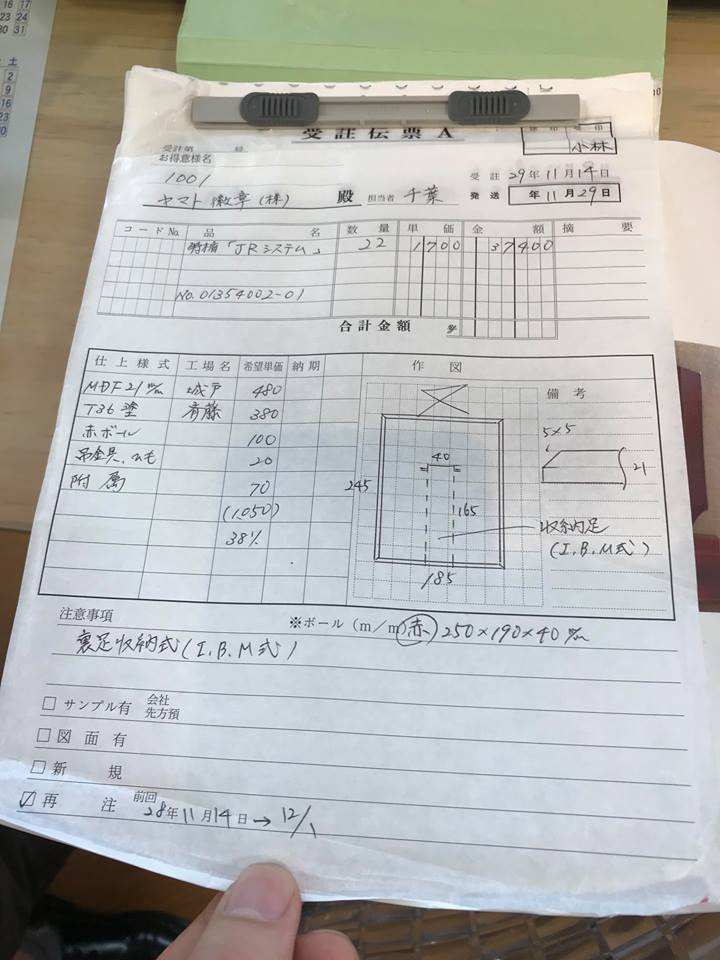 16 17
23 24
30 31
土
2
9
16
23
30
受註伝票A
小林
受註第 号
お得意様名
1001
ヤマト徽章(株) 殿 担当者 千葉
受註 29年11月14日
発送 年11月29日
コードNo. 品名 数量 単価 金額 摘要
「JRシステム」 22 1700 37400
No.01354002-01
合計金額
仕上様式 工場名 希望単価 納期 作図
備考
MDF21m/m 城戸 480
T36塗 斉藤 380
赤ボール 100
吊金具、ひも 20
附属 70
(1,050)
38%
40
245
165
185
収納足
(I.B.M式)
5×5
21
注意事項
※ボール(m/m) 赤 250×190×40m/m
裏足収納式(I.B.M式)
□サンプル有 会社
先方預
□図面有
□新規
☑再注 前回
28年11月14日→12/1